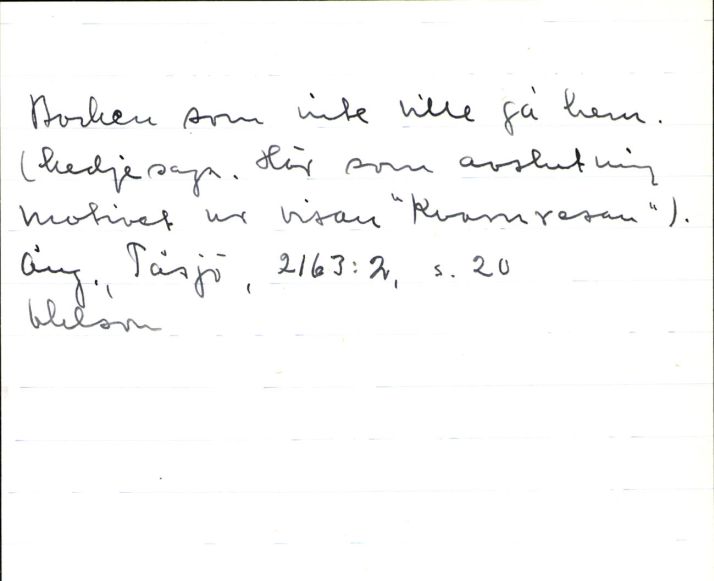 Bocken som inte ville gå hem.
(kedjesaga. Här som avslutning
motivet ur visan "Kvarnresan").
Ång., Tåsjö, 2163:2, s. 20